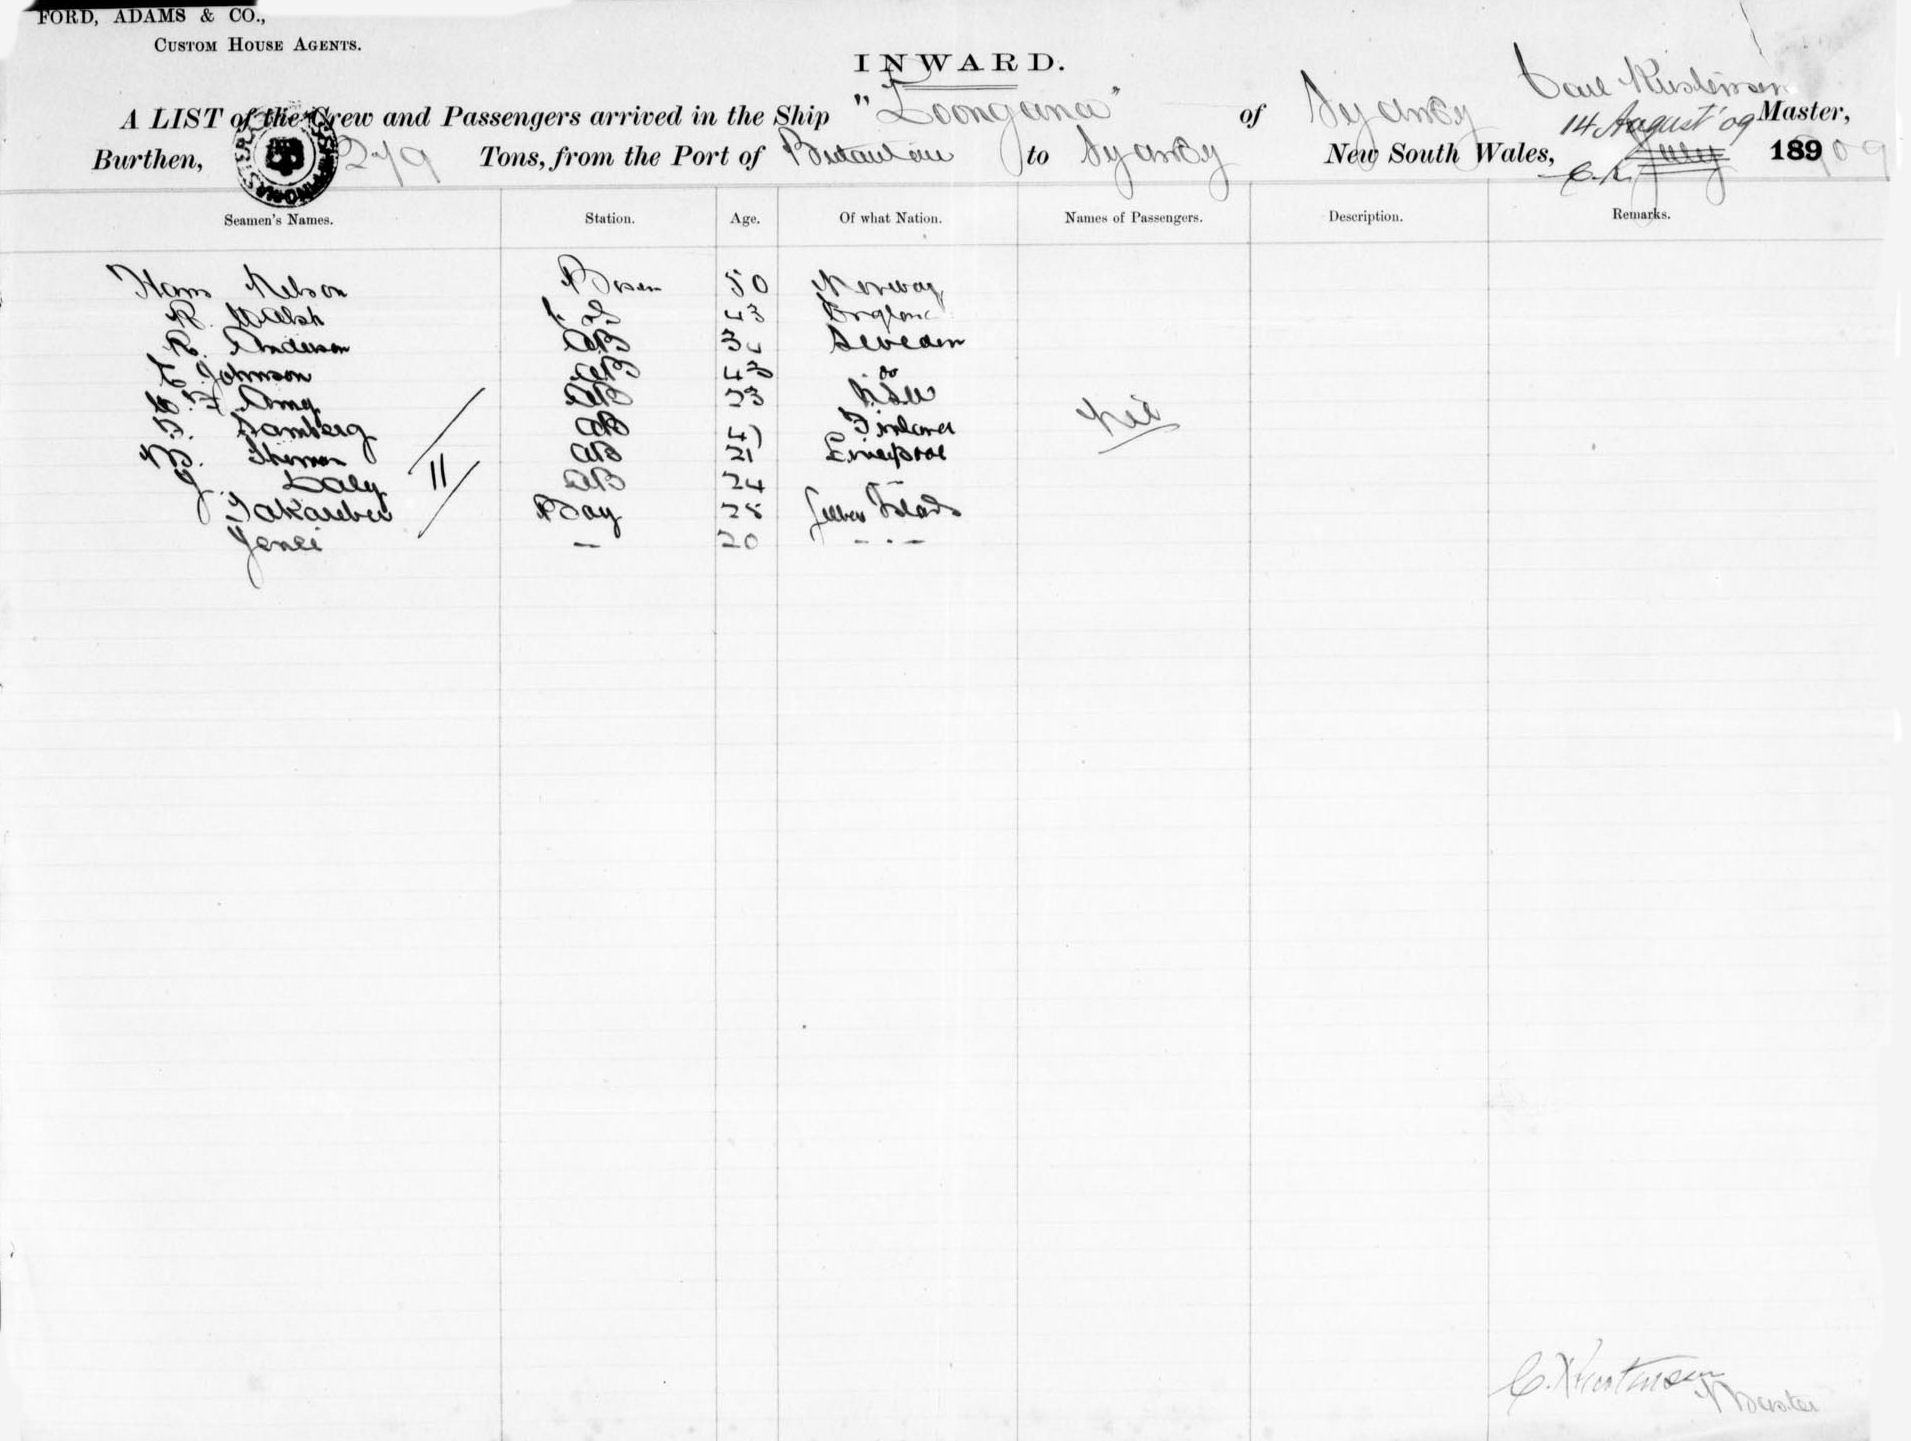 FORD, ADAMS & CO.,
CUSTOM HOUSE AGENTS.
INWARD.
Carl Kustensen
A LIST of the Crew and Passengers arrived in the Ship "Loongana" of Sydney Master,
14 August '09
Burthen, 279 Tons, from the Port of to Sydney New South Wales, July 189 09
C.K.
Seamen's Names. Station. Age. Of what Nation. Names of Passengers. Description. Remarks.
Hans Nelson Bosun 50 Norway
R. Walsh 43 England
R. Anderson AB 34 Sweden
C Johnson AB 43 do
AB 23 NSW
Nil
F. Samberg AB 47 Finland
AB 21 Liverpool
J Daly AB 24 –
11
Boy 28 Gilbert Islands
– 20 – . –
C. Kustensen
Master